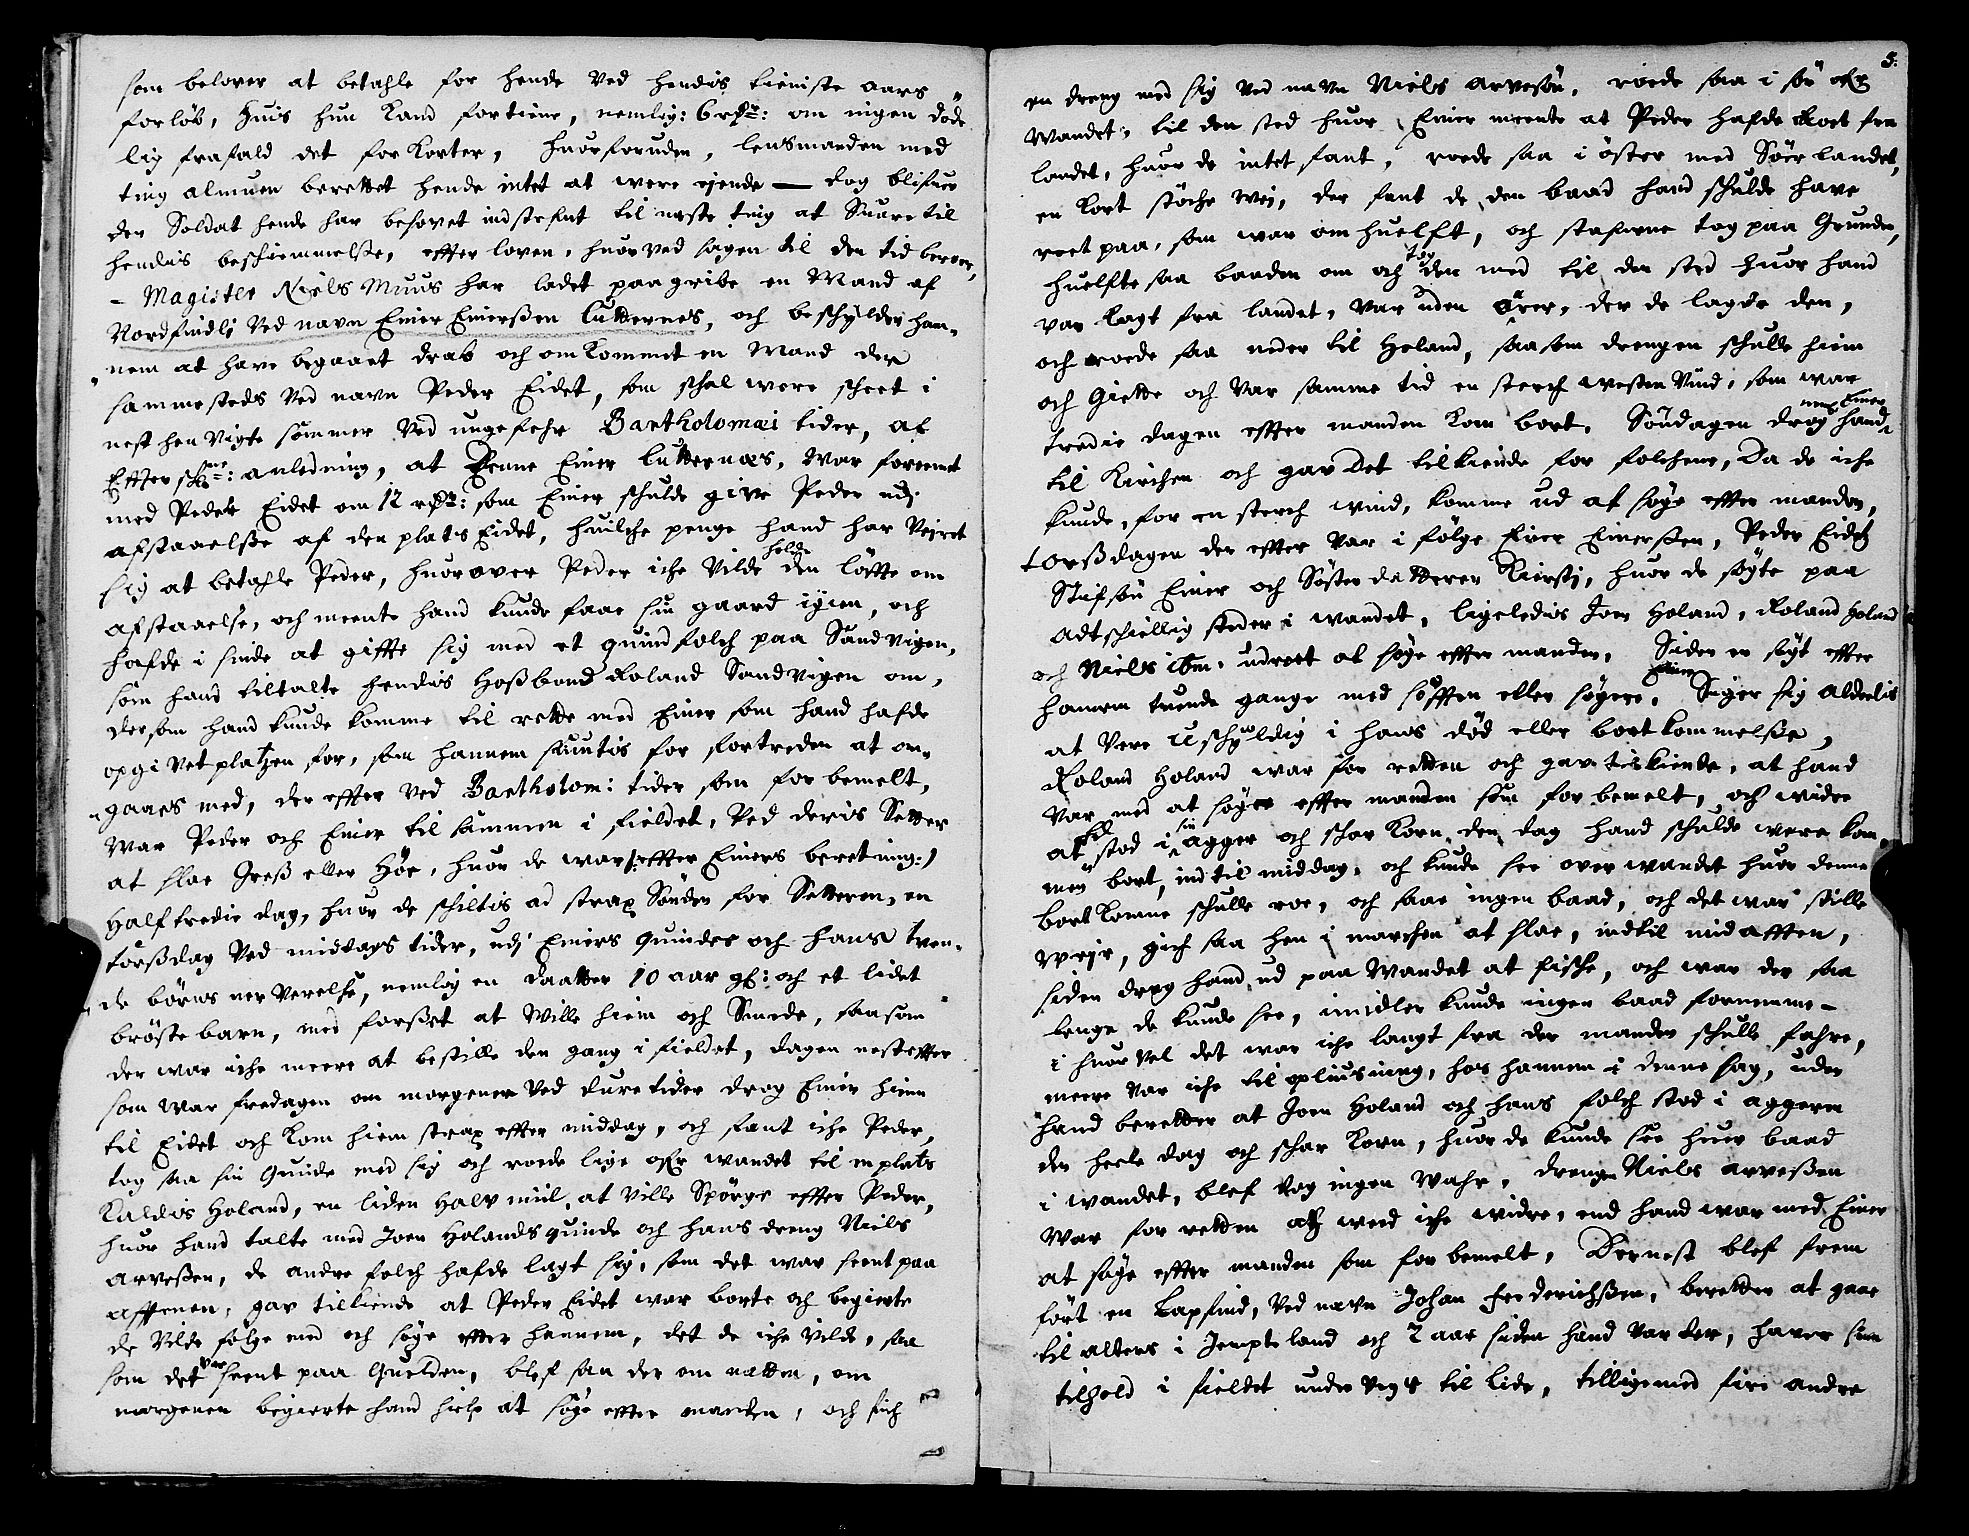 som belover at betahle for hende ved hendis tieniste aars
forløb, huis hun kand fortiene, nemlig: 6 rdr: om ingen døde
lig frafald det forkorter, huorforuden, lensmanden med
ting almuen berettet hende intet at were eiende — dog blifuer
den Soldat hende har besovet indstefnt til neste ting at Suare til
hendis beschiemmelse, effter loven, huorved sagen til den tid beroer,
- Magister Niels Muus har ladet paagribe en Mand af
Nordfindli ved navn Einer Einerßen Lutternes, och beschylder han-
nem at have begaaet drab och omkommet en Mand der
sammesteds ved navn Peder Eidet, som schal were scheet i
nest hen vigte sommer ved ungefehr Bartholomæi tider, at
Effter anledning, at denne Einer Lutternæs, war foreenet
med Peder Eidet om 12 rdr: som Einer schulde give Peder udj
afstaaelße af den plats Eidet, huilche penge hand har veiret
sig at betahle Peder, huorover Peder iche vilde holde den løffte om
afstaaelse, och meente hand kunde faae sin gaard igien, och
hafde i sinde at giffte sig med et quindfolch paa Sandvigen,
som hand tiltalte hendis Hoßbond Roland Sandvigen om,
dersom hand kunde komme til rette med Einer som hand hafde
opgivet platzen for, som hannem siuntis for fortreden at om-
gaaes med, der effter ved Bartholom: tider som forbemelt,
war Peder och Einer tilsammen i fieldet, ved deris Setter
at slae Greß eller Høe, huor de war /:effter Einers beretning:/
Halftredie dag, huor de schiltis ad strax Sønden for Setteren, en
torßdag ved middags tider, udj Einers quindes och hans tven-
de børns nerverelse, nemlig en daatter 10 aar gl: och et lidet
brøstebarn, med forßet at wille hiem och Smede, saasom
der war iche meere at bestille den gang i fieldet, dagen nesteffter
som war fredagen om morgenen ved duretider drog Einer hiem
til Eidet och kom hiem strax effter middag, och fant iche Peder
tog saa sin quinde med sig och roede lige ofr wandet til en plats
kaldis Holand, en liden halv miil, at ville Spørge effter Peder,
huor hand talte med Joen Holands quinde och hans dreng Niels
Arveßen, de andre folch hafde lagt sig, som det war seent paa
afftenen, gav tilkiende at Peder Eidet war borte och begierte
de vilde følge med och søge effter hannem, det de iche vilde, saa
som det var seent paa Quelden, blef saa der om natten, om
morgenen begierte hand hielp at søge effter manden, och fich
5.
en dreng med sig ved navn Niels Arvesøn, roede saa i sør ofr
Wandet, til den sted huor Einer meente at Peder hafde roet fra
landet, huor de intet fant, roede saa i øster med Søer landet,
en kort støche wei, der fant de den baad hand schulde have
roet paa, som war omhuelft, och stafnene tog paa Grunden,
huelfte saa baaden om och den med til den sted huor hand
var lagt fra landet, var uden årer, der de lagde den,
och roede saa neder til Holand, saasom drengen schulde hiem
och Giette och var samme tid en sterch westen vind, som war
tredie dagen effter manden kom bort. Søndagen drog hand nemlig Einer
til Kirchen och gav det tilkiende for folchene, Da de iche
kunde, for en sterch wind, komme ud at søge effter manden,
torßdagen der effter var i følge Einer Einerßen, Peder Eidets
Stifsøn Einer och Søster datteren Kiersti, huor de søgte paa
adtschiellig steder i wandet, ligeledis Joen Holand, Roland Holand
och Niels ibm: udroet at søge effter manden, Siden er søgt effter
hannem tvende gange med søfften eller søgere, Einer Siger sig aldeelis
at vere uschyldig i hans død eller bortkommelße,
Roland Holand war for retten och gav tilkiende, at hand
var med at søge effter manden som forbemelt, och widre
at hand stod i sin agger och schar korn den dag hand schulde were kom-
men bort, indtil middag, och kunde see over wandet huor denne
bortkomne schulle roe, och saae ingen baad, och det war stille
weir, gich saa hen i marchen at slae, indtil midafften,
siden drog hand ud paa wandet at fische, och war der saa
lenge de kunde see, imidler kunde ingen baad fornemme -
i huor vel det war iche langt fra der manden schulle fahre,
meere var iche til oplusning, hos hannem i denne sag, uden
hand beretter at Joen Holand och hans folch stod i aggeren
den heele dag och schar korn, huor de kunde see huer baad
i wandet, blef dog ingen wahr, drengen Niels Arveßen
war for retten och weed iche widre, end hand war med Einer
at søge effter manden som forbemelt, Dernest blef frem
ført en Lapfind, ved navn Johan Frederichßen, beretter at gaae
til alters i Jempteland och 2 aar siden hand var der, haver sin
tilhold i fieldet under vigt til lide, tilligemed fire andre